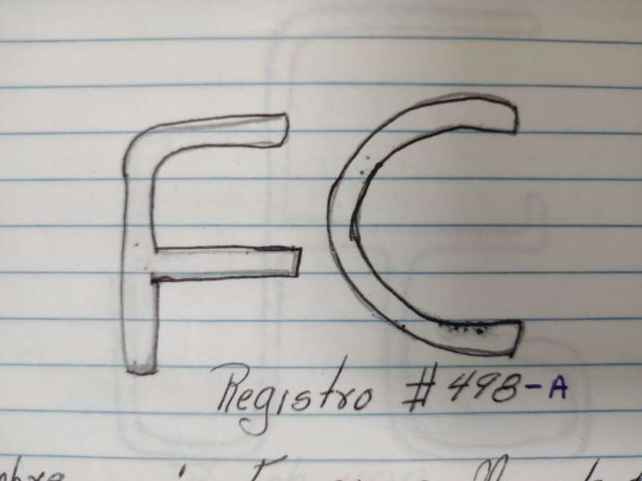 FC
Registro #498-A